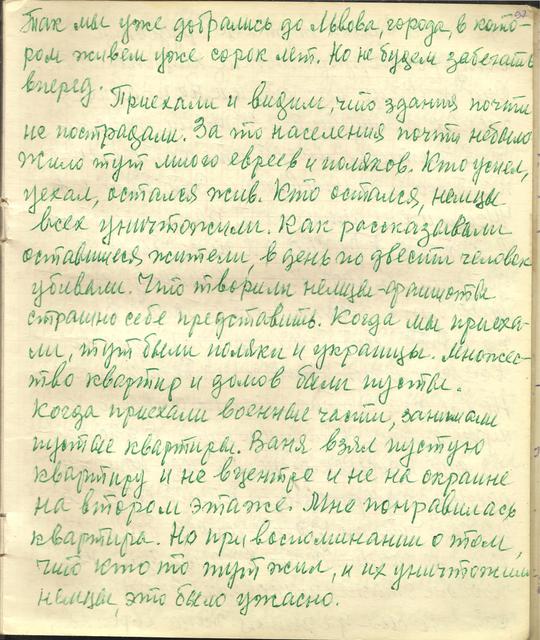 Так мы уже добрались до Львова, города, в кото-
ром живем уже сорок лет. Но не будем забегать
вперед.
Приехали и видим, что здания почти
не пострадали. За то населения почти небыло
Жило тут много евреев и поляков. Кто успел,
уехал, остался жив. Кто остался, немцы
всех уничтожили. Как рассказывали
оставшиеся жители, в день по двести человек
убивали. Что творили немцы-фашисты
страшно себе представить. Когда мы приеха-
ли, тут были поляки и украинцы. Множес-
тво квартир и домов были пусты.
Когда приехали военные части, занимали
пустые квартиры. Ваня взял пустую
квартиру и не вцентре и не на окраине
на втором этаже. Мне понравилась
квартира. Но при воспоминании о том,
что кто то тут жил, и их уничтожили
немцы, это было ужасно.